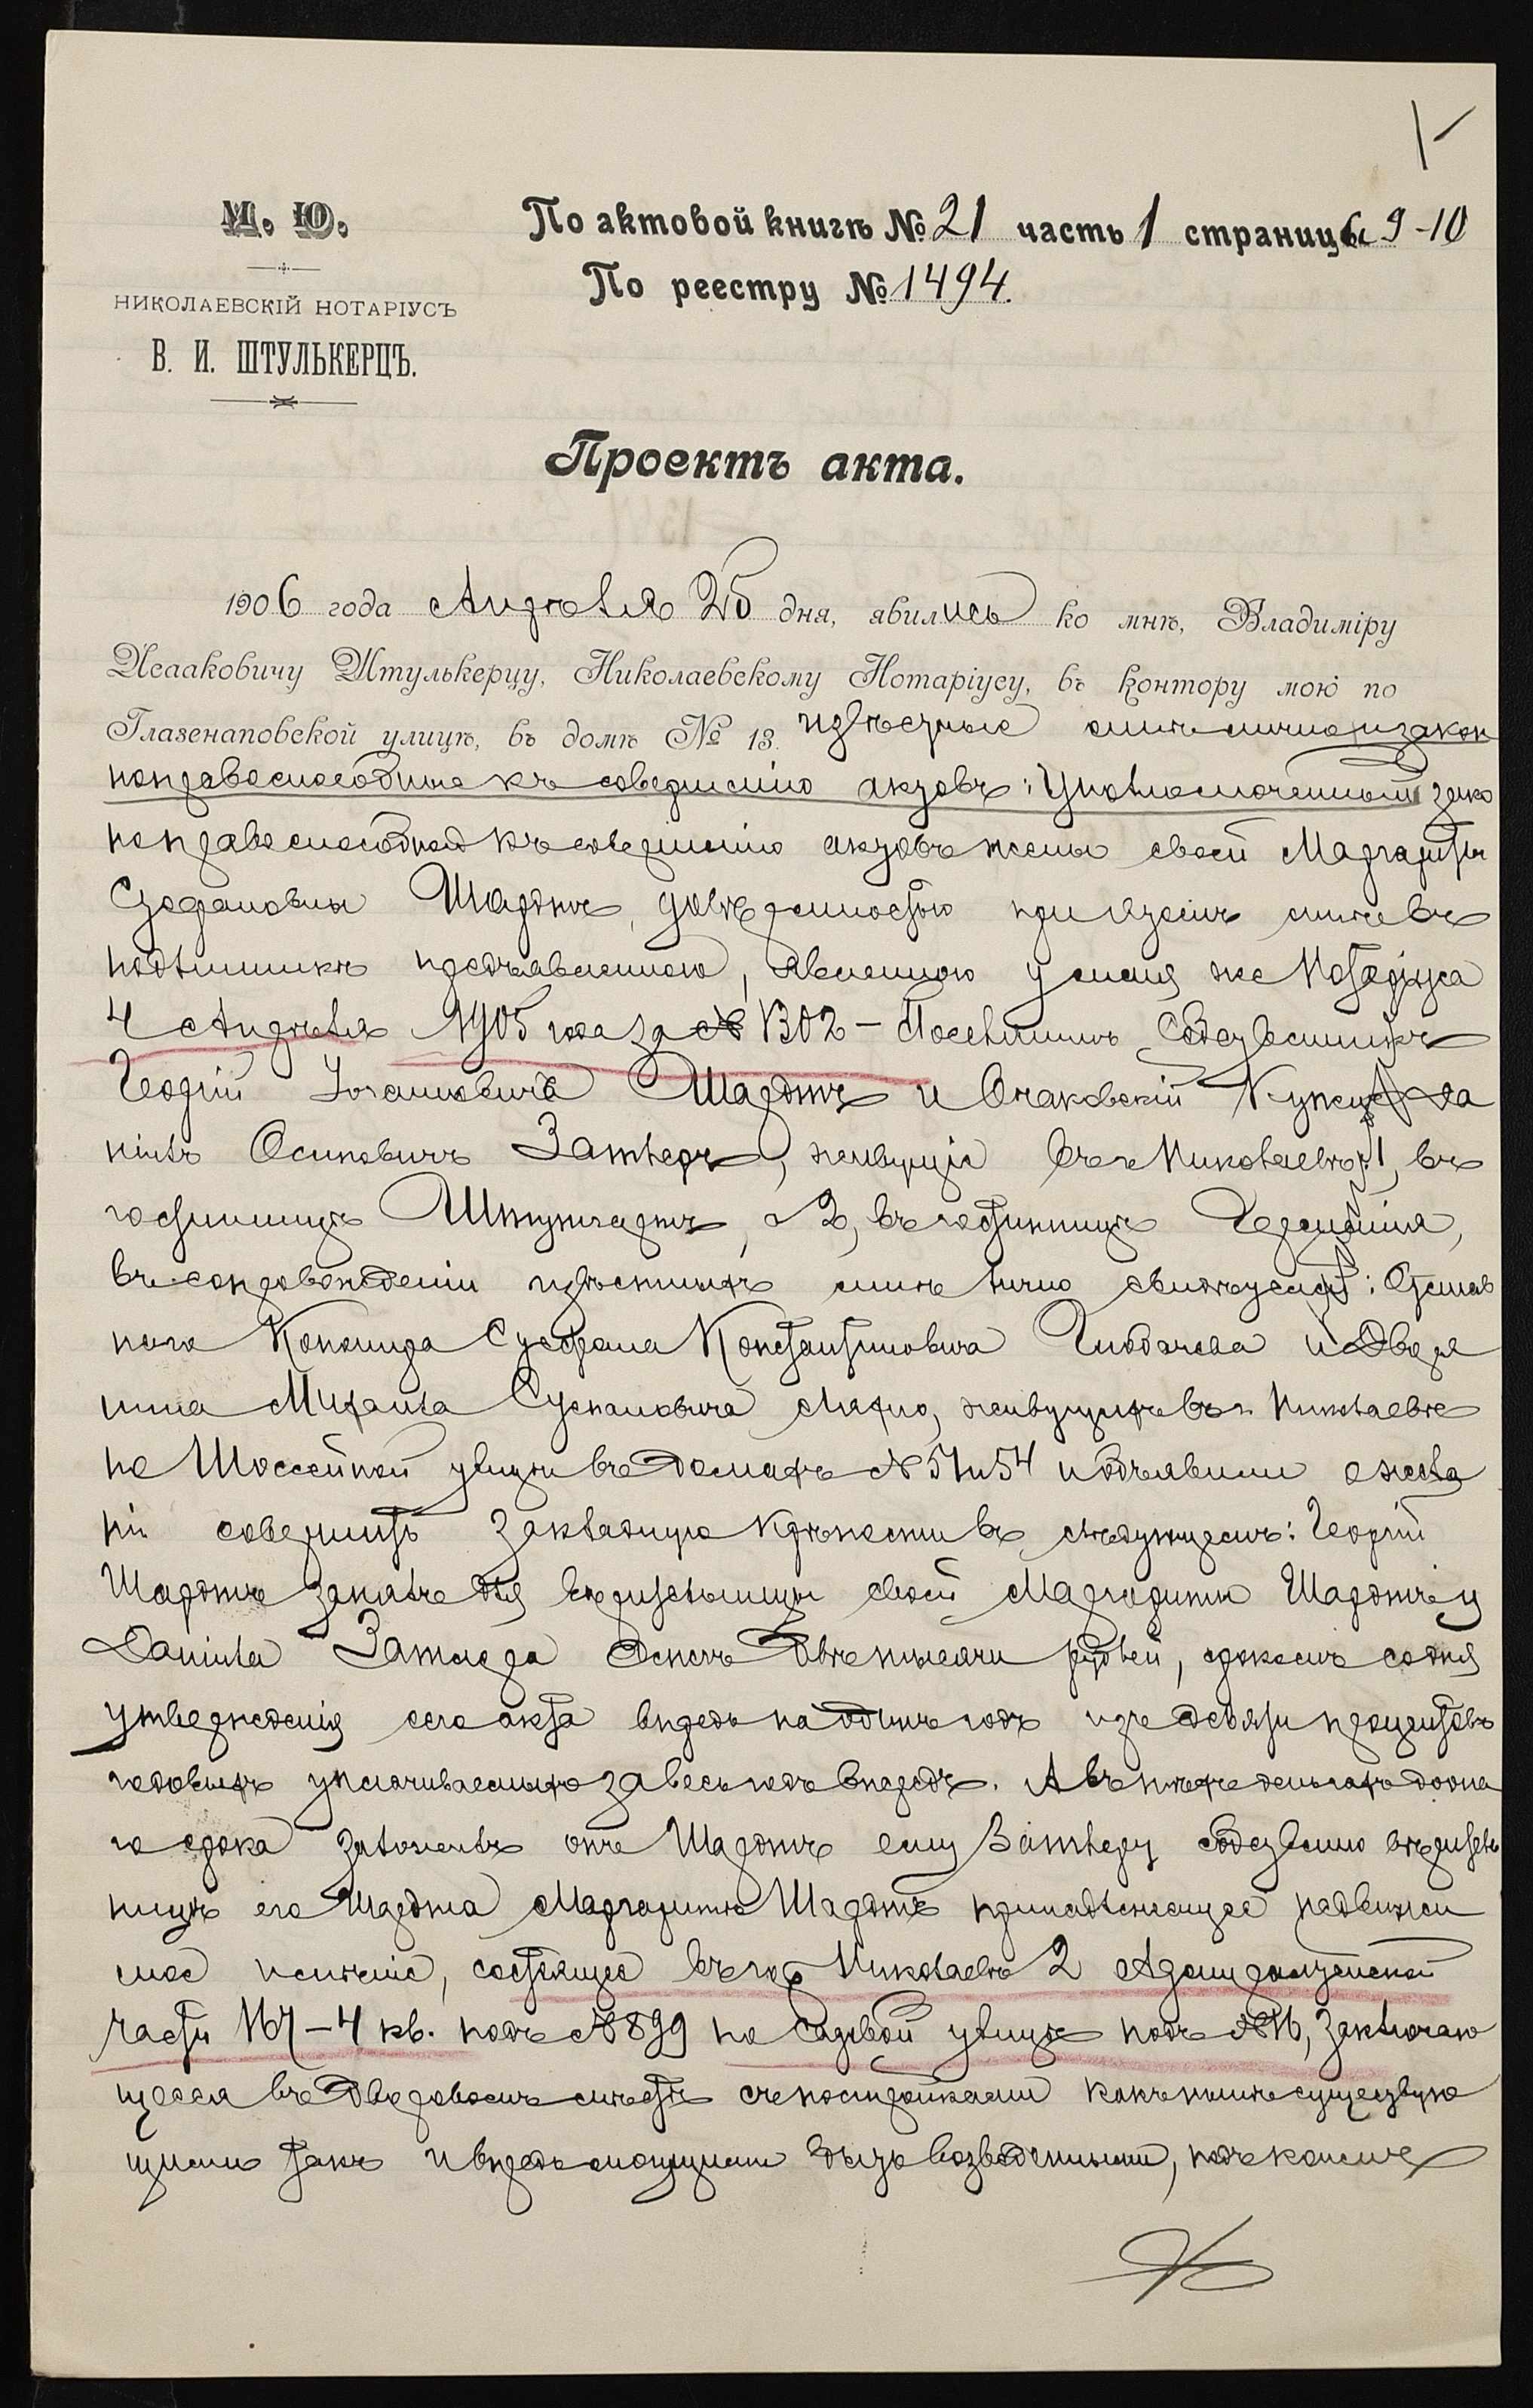 М. Ю.
НИКОЛАЕВСКІЙ НОТАРІУСЪ
В. И. ШТУЛЬКЕРЦЪ.
По актовой книгѣ № 21 часть 1 страницы 9-10
По реестру № 1494.
Проектъ акта.
1906 года Апрѣля 25 дня, явились ко мнѣ, Владиміру
Исааковичу Штулькерцу, Николаевскому Нотаріусу, въ контору мою по
Глазенаповской улицѣ, въ домѣ № 13. извѣстные мнѣ лично и закон
ноправоспособные къ совершенію актовъ: Уполномоченный зако
ноправоспособной къ совершенію актовъ жены своей Маргариты
Стефановны Шардтъ, довѣренностью при этомъ мнѣ въ
подлинникѣ предъявленною, явленною у меня же Нотаріуса
4 Апрѣля 1905 года за № 1302 — Поселянинъ Собственникъ
Георгій Шардтъ и Очаковскій Купецъ Да
ніилъ Осиповичъ Затлеръ, живущіе въ г. Николаевѣ: 1, въ
гостинницѣ Штутгартъ, 2, въ гостинницѣ Германія,
въ сопровожденіи извѣстныхъ мнѣ лично свидѣтелей: Отстав
ного Стефана Константиновича и Дворя
нина Михаила Степановича живущихъ въ г. Николаевѣ
по Шоссейной улицѣ въ домахъ № и 54 и объявили о жела
ніи совершить закладную крѣпость въ слѣдующемъ: Георгій
Шардтъ занялъ для вѣрительницы своей Маргариты Шардтъ у
Даніила Затлера денегъ двѣ тысячи рублей, срокомъ со дня
утвержденія сего акта впредь на одинъ годъ изъ девяти процентовъ
годовыхъ уплачиваемыхъ за весь годъ впередъ. А въ тѣхъ деньгахъ до она
го срока заложилъ онъ Шардтъ ему Затлеру собственно вѣритель
ницѣ его Шардта Маргаритѣ Шардтъ принадлежащее недвижи
мое имѣніе, состоящее въ гор. Николаевѣ 2 Адмиралтейской
части 4 кв. подъ № 899 по Садовой улицѣ подъ № 16, заключаю
щееся въ дворовомъ мѣстѣ съ постройками какъ нынѣ существую
щими такъ и впредь могущими быть возведенными, подъ коимъ